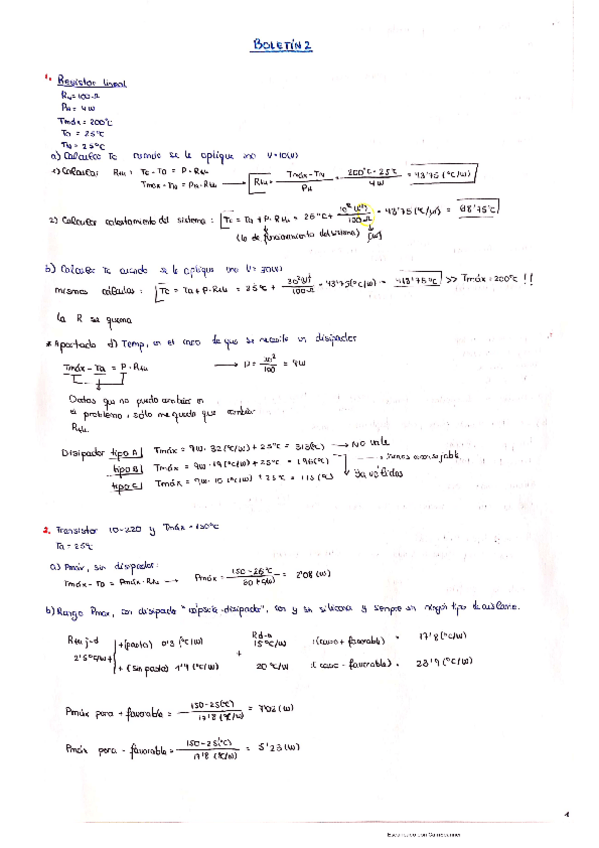 BOLETÍN 2
1. Resistor lineal
RN=100Ω
PN= 4W
Tmáx = 200°C
Ta = 25°C
TN = 25°C
a) Calcular Tc cuando se le aplique una V=10(V)
1) Calcular Rthu = Tc - Ta = P·Rthu
Tmáx - TN = PN·Rthu → Rthu = Tmáx - TN / PN = 200°C - 25°C / 4W = 43'75 (°C/W)
2) Calcular calentamiento del sistema : Tc = Ta + P·Rthu = 25°C + 10² (V²) / 100Ω · 43'75 (°C/W) = 68'75°C
(la de funcionamiento del sistema) [W]
b) Calcular Tc cuando se le aplique una V= 30(V)
mismos cálculos: Tc = Ta + P·Rthu = 25°C + 30² V² / 100Ω · 43'75(°C/W) = 418'75°C >> Tmáx = 200°C !!
la R se quema
* Apartado d) Temp, en el caso de que se necesite un disipador
Tmáx - Ta = P·Rthu → P = 30² / 100 = 9W
Datos que no puedo cambiar en
el problema, sólo me queda que cambiar
Rthu
Disipador tipo A Tmáx = 9W · 32 (°C/W) + 25°C = 313(°C) → NO vale
tipo B Tmáx = 9W · 19 (°C/W) + 25°C = 196(°C) → menos aconsejable
tipo C Tmáx = 9W · 10 (°C/W) + 25°C = 115(°C) Ya válidas
2. Transistor TO-220 y Tmáx = 150°C
Ta = 25°C
a) Pmáx, sin disipador:
Tmáx - Ta = Pmáx·Rthu → Pmáx = 150 - 25°C / 60 °C/W = 2'08 (W)
b) Rango Pmax, con disipador "cápsula-disipador", con y sin silicona y siempre sin ningún tipo de aislante.
Rthu j-d Rd-a
2'5°C/W + +(pasta) 0'3 (°C/W) + 15°C/W :(caso + favorable) = 17'8 (°C/W)
+ (sin pasta) 1'4 (°C/W) 20°C/W :(caso - favorable) = 23'9 (°C/W)
Pmáx para + favorable = 150 - 25(°C) / 17'8 (°C/W) = 7'02 (W)
Pmáx para - favorable = 150 - 25(°C) / 17'8 (°C/W) = 5'23 (W)
1
Escaneado con CamScanner